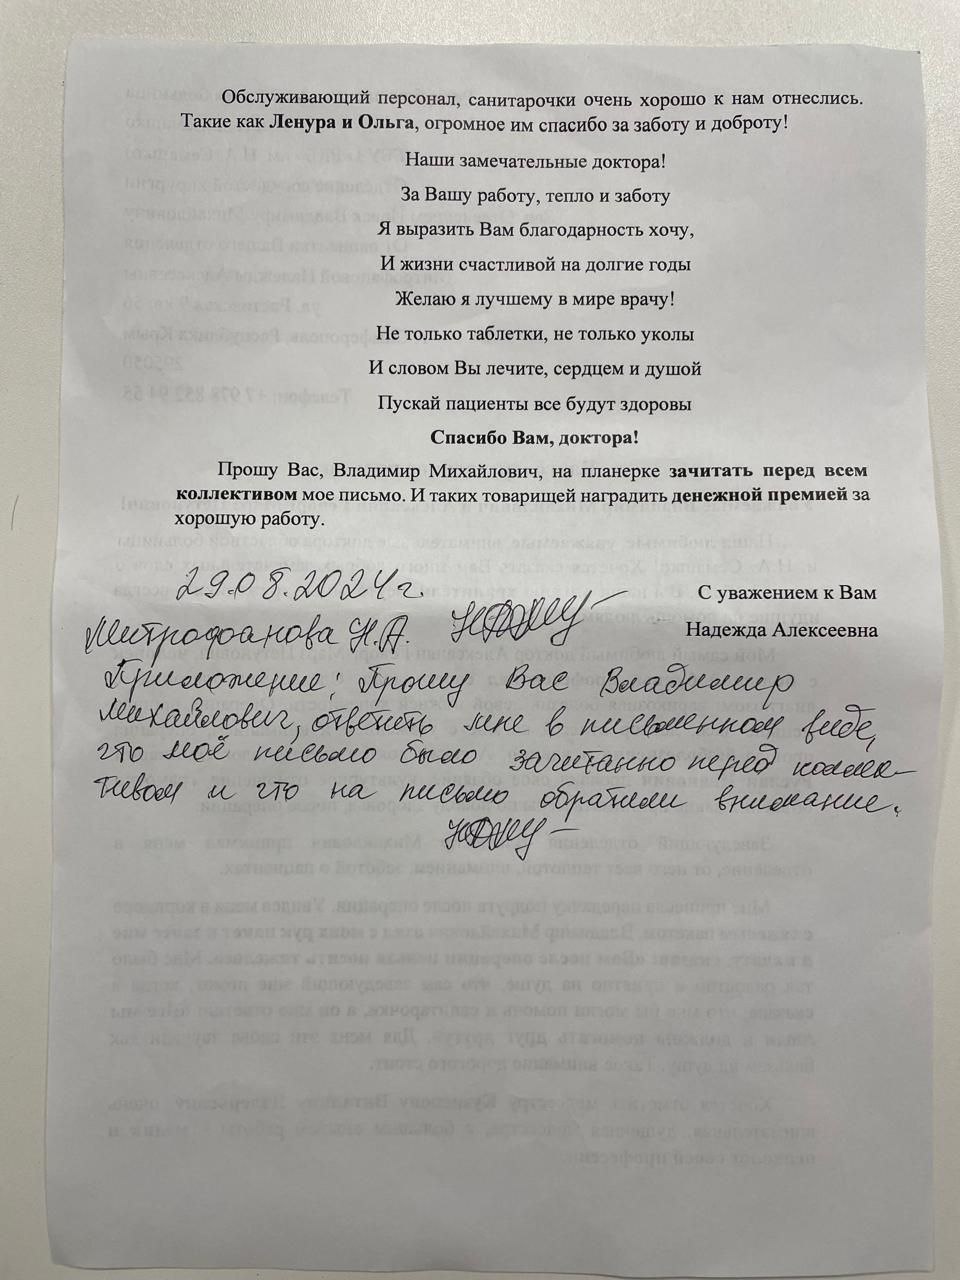 Обслуживающий персонал, санитарочки очень хорошо к нам отнеслись.
Такие как Ленура и Ольга, огромное им спасибо за заботу и доброту!
Наши замечательные доктора!
За Вашу работу, тепло и заботу
Я выразить Вам благодарность хочу,
И жизни счастливой на долгие годы
Желаю я лучшему в мире врачу!
Не только таблетки, не только уколы
И словом Вы лечите, сердцем и душой
Пускай пациенты все будут здоровы
Спасибо Вам, доктора!
Прошу Вас, Владимир Михайлович, на планерке зачитать перед всем
коллективом мое письмо. И таких товарищей наградить денежной премией за
хорошую работу.
29.08.2024г.
С уважением к Вам
Митрофанова Н.А.
Надежда Алексеевна
Приложение: Прошу Вас Владимир
Михайлович, ответить мне в письменном виде,
что моё письмо было зачитанно перед коллек-
тивом и что на письмо обратили внимание.